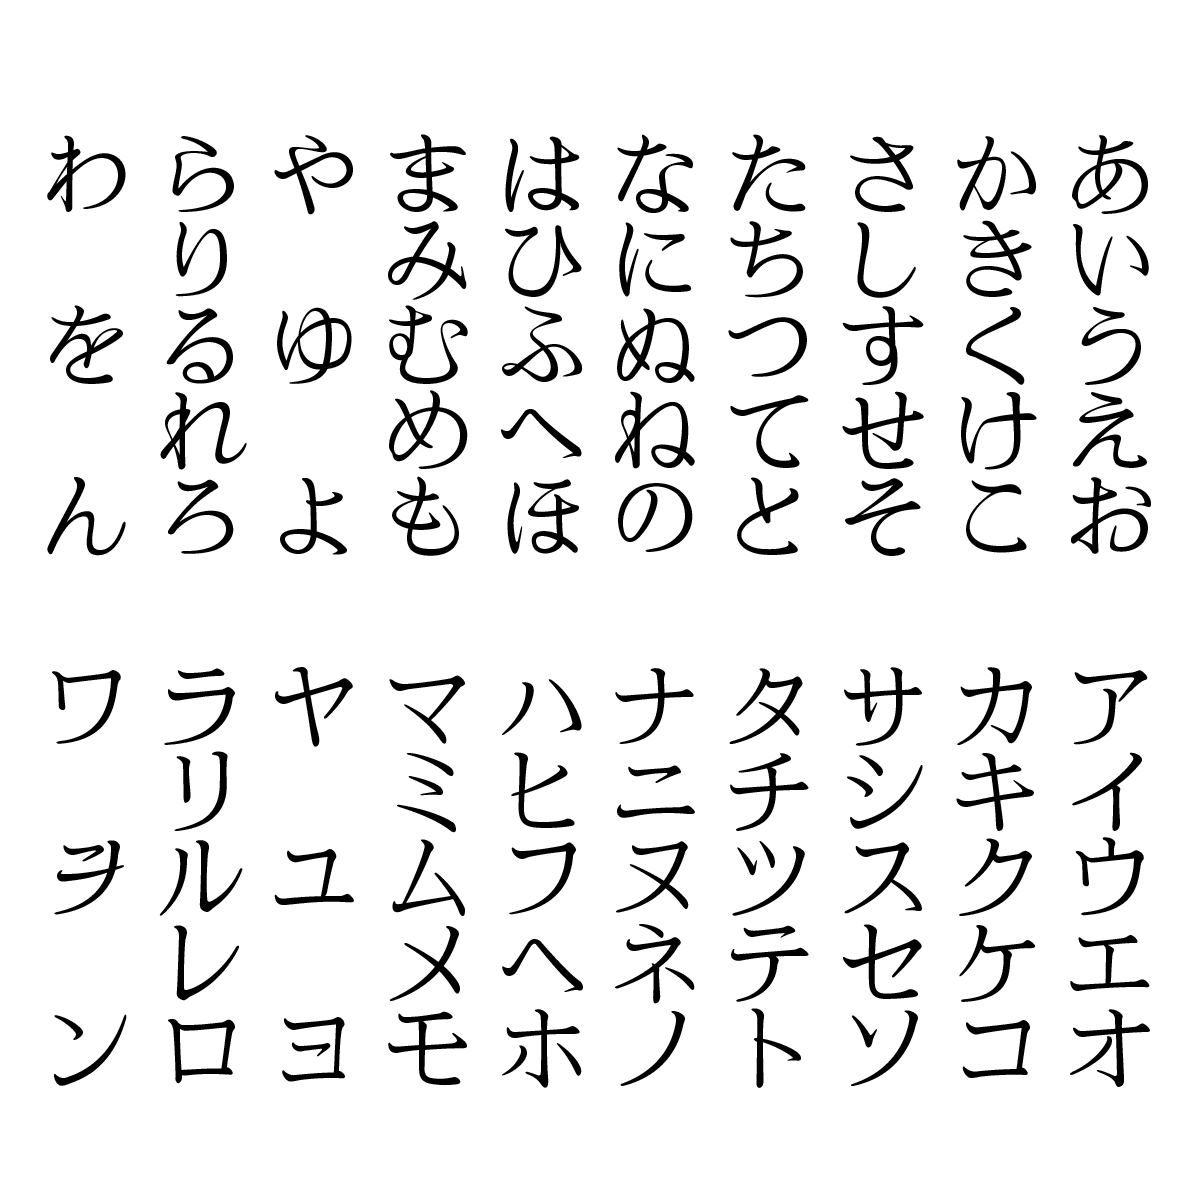 あいうえお
かきくけこ
さしすせそ
たちつてと
なにぬねの
はひふへほ
まみむめも
やゆよ
らりるれろ
わをん
アイウエオ
カキクケコ
サシスセソ
タチツテト
ナニヌネノ
ハヒフヘホ
マミムメモ
ヤユヨ
ラリルレロ
ワヲン